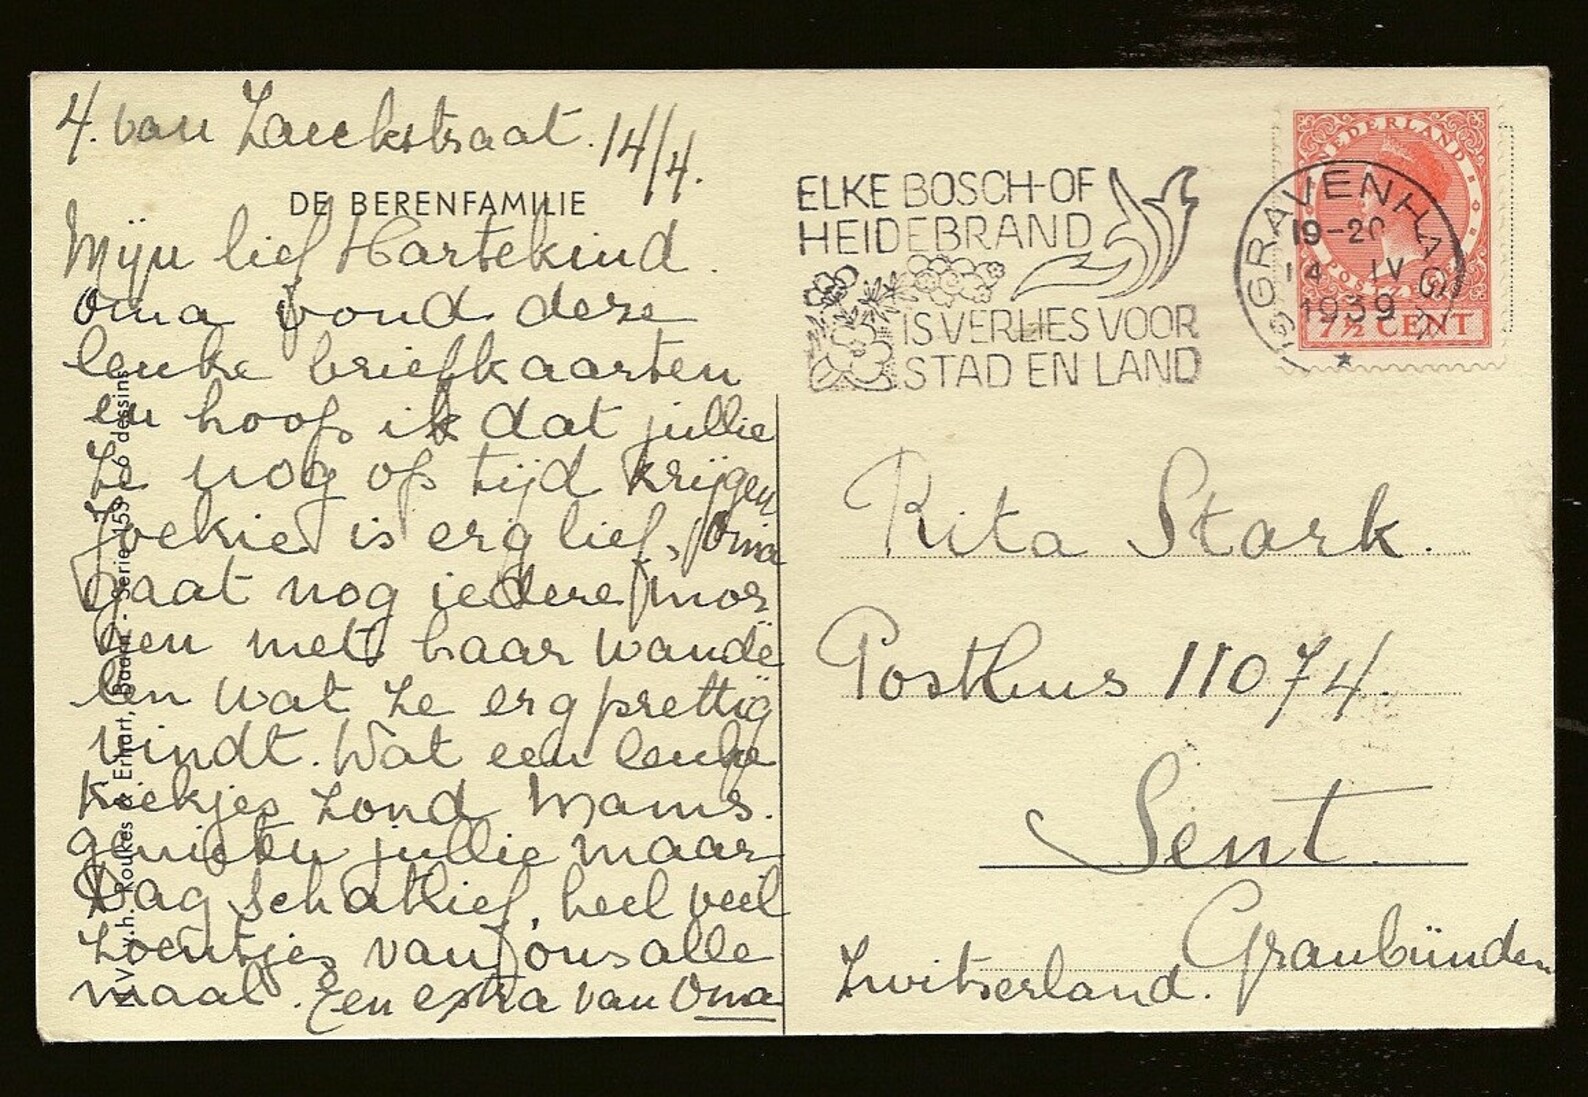 4. van Laeckstraat. 14/4.
DE BERENFAMILIE
Mijn lief Hartekind.
Oma vond deze
leuke briefkaarten
en hoop ik dat jullie
ze nog op tijd krijgen
Joekie is erg lief, Oma
gaat nog iedere mor
gen met haar wande
len wat ze erg prettig
vindt. Wat een leuke
kiekjes zond Mams.
genieten jullie maar
Dag schatlief, heel veel
zoentjes van ons alle
maal. Een extra van Oma
N.V. v.h. Roukes & Erhart, Baarn. - Serie 159 - 6 dessins
ELKE BOSCH-OF
HEIDEBRAND
IS VERLIES VOOR
STAD EN LAND
NEDERLAND
POSTZEGEL
7½ CENT
'S GRAVENHAGE
19-20
14 IV
1939
Rita Stark.
Posthus 11074.
Sent.
Graubünden
Zwitserland.